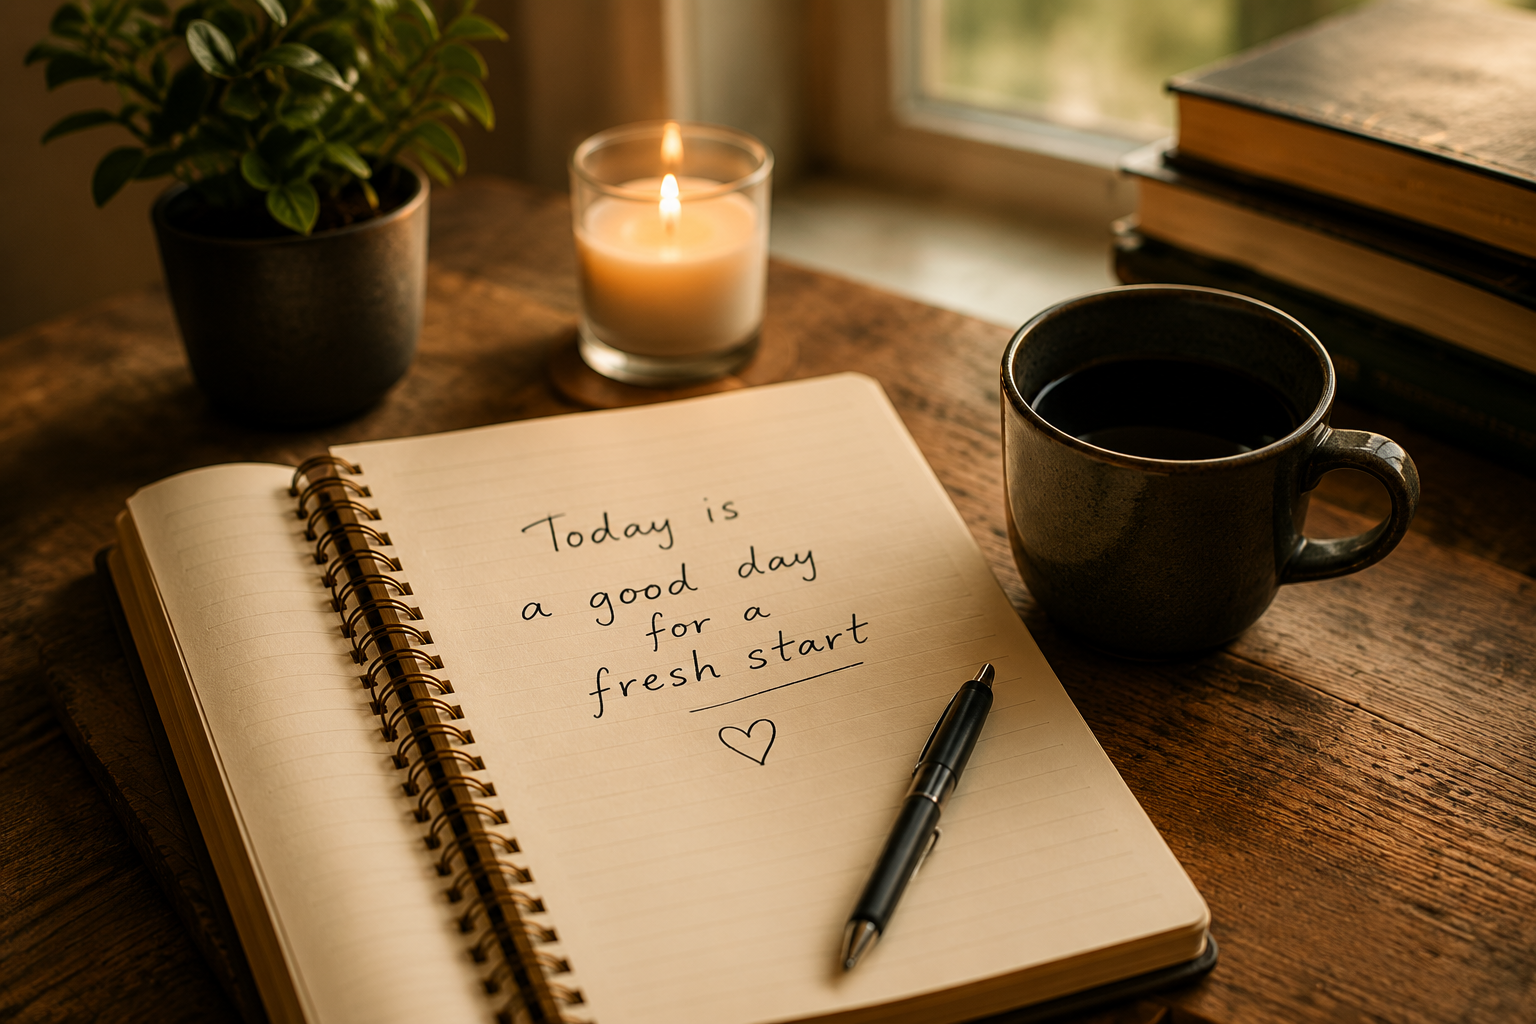 Today is
a good day
for a
fresh start